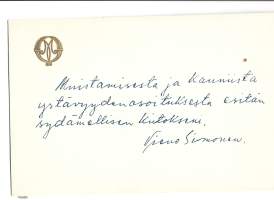 Muistamisesta ja kauniista
ystävyydenosoituksesta esitän
sydämellisen kiitokseni.
Vieno Simonen.